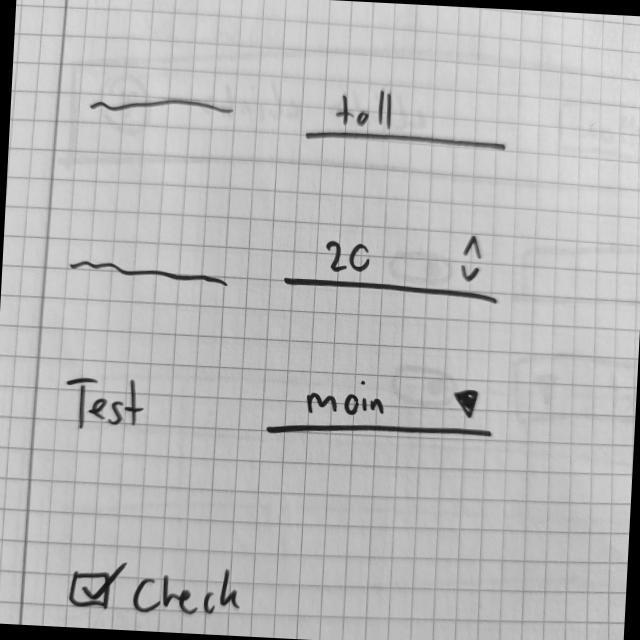 toll
20
Test moin
Check